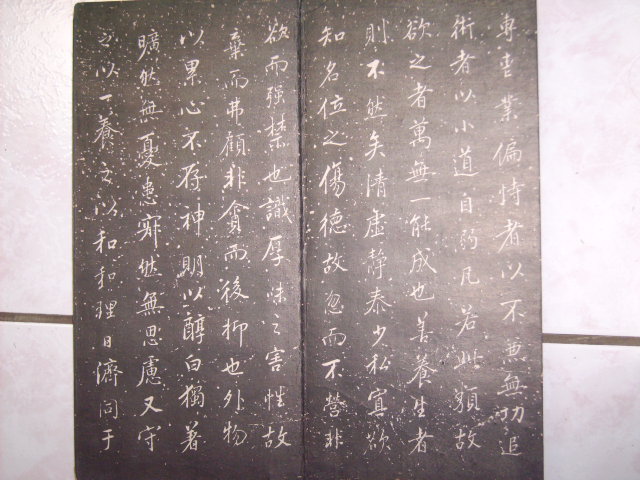 專喪業偏恃者以不兼無功追
術者以小道自弱凡若此類故
欲之者萬無一能成也善養生者
則不然矣清虛静泰少私寡欲
知名位之傷德故忽而不營非
欲而强禁也識厚味之害性故
棄而弗顧非貪而後抑也外物
以累心不存神明以醇白獨著
曠然無憂患寂然無思慮又守
之以一養之以和和理日濟同于